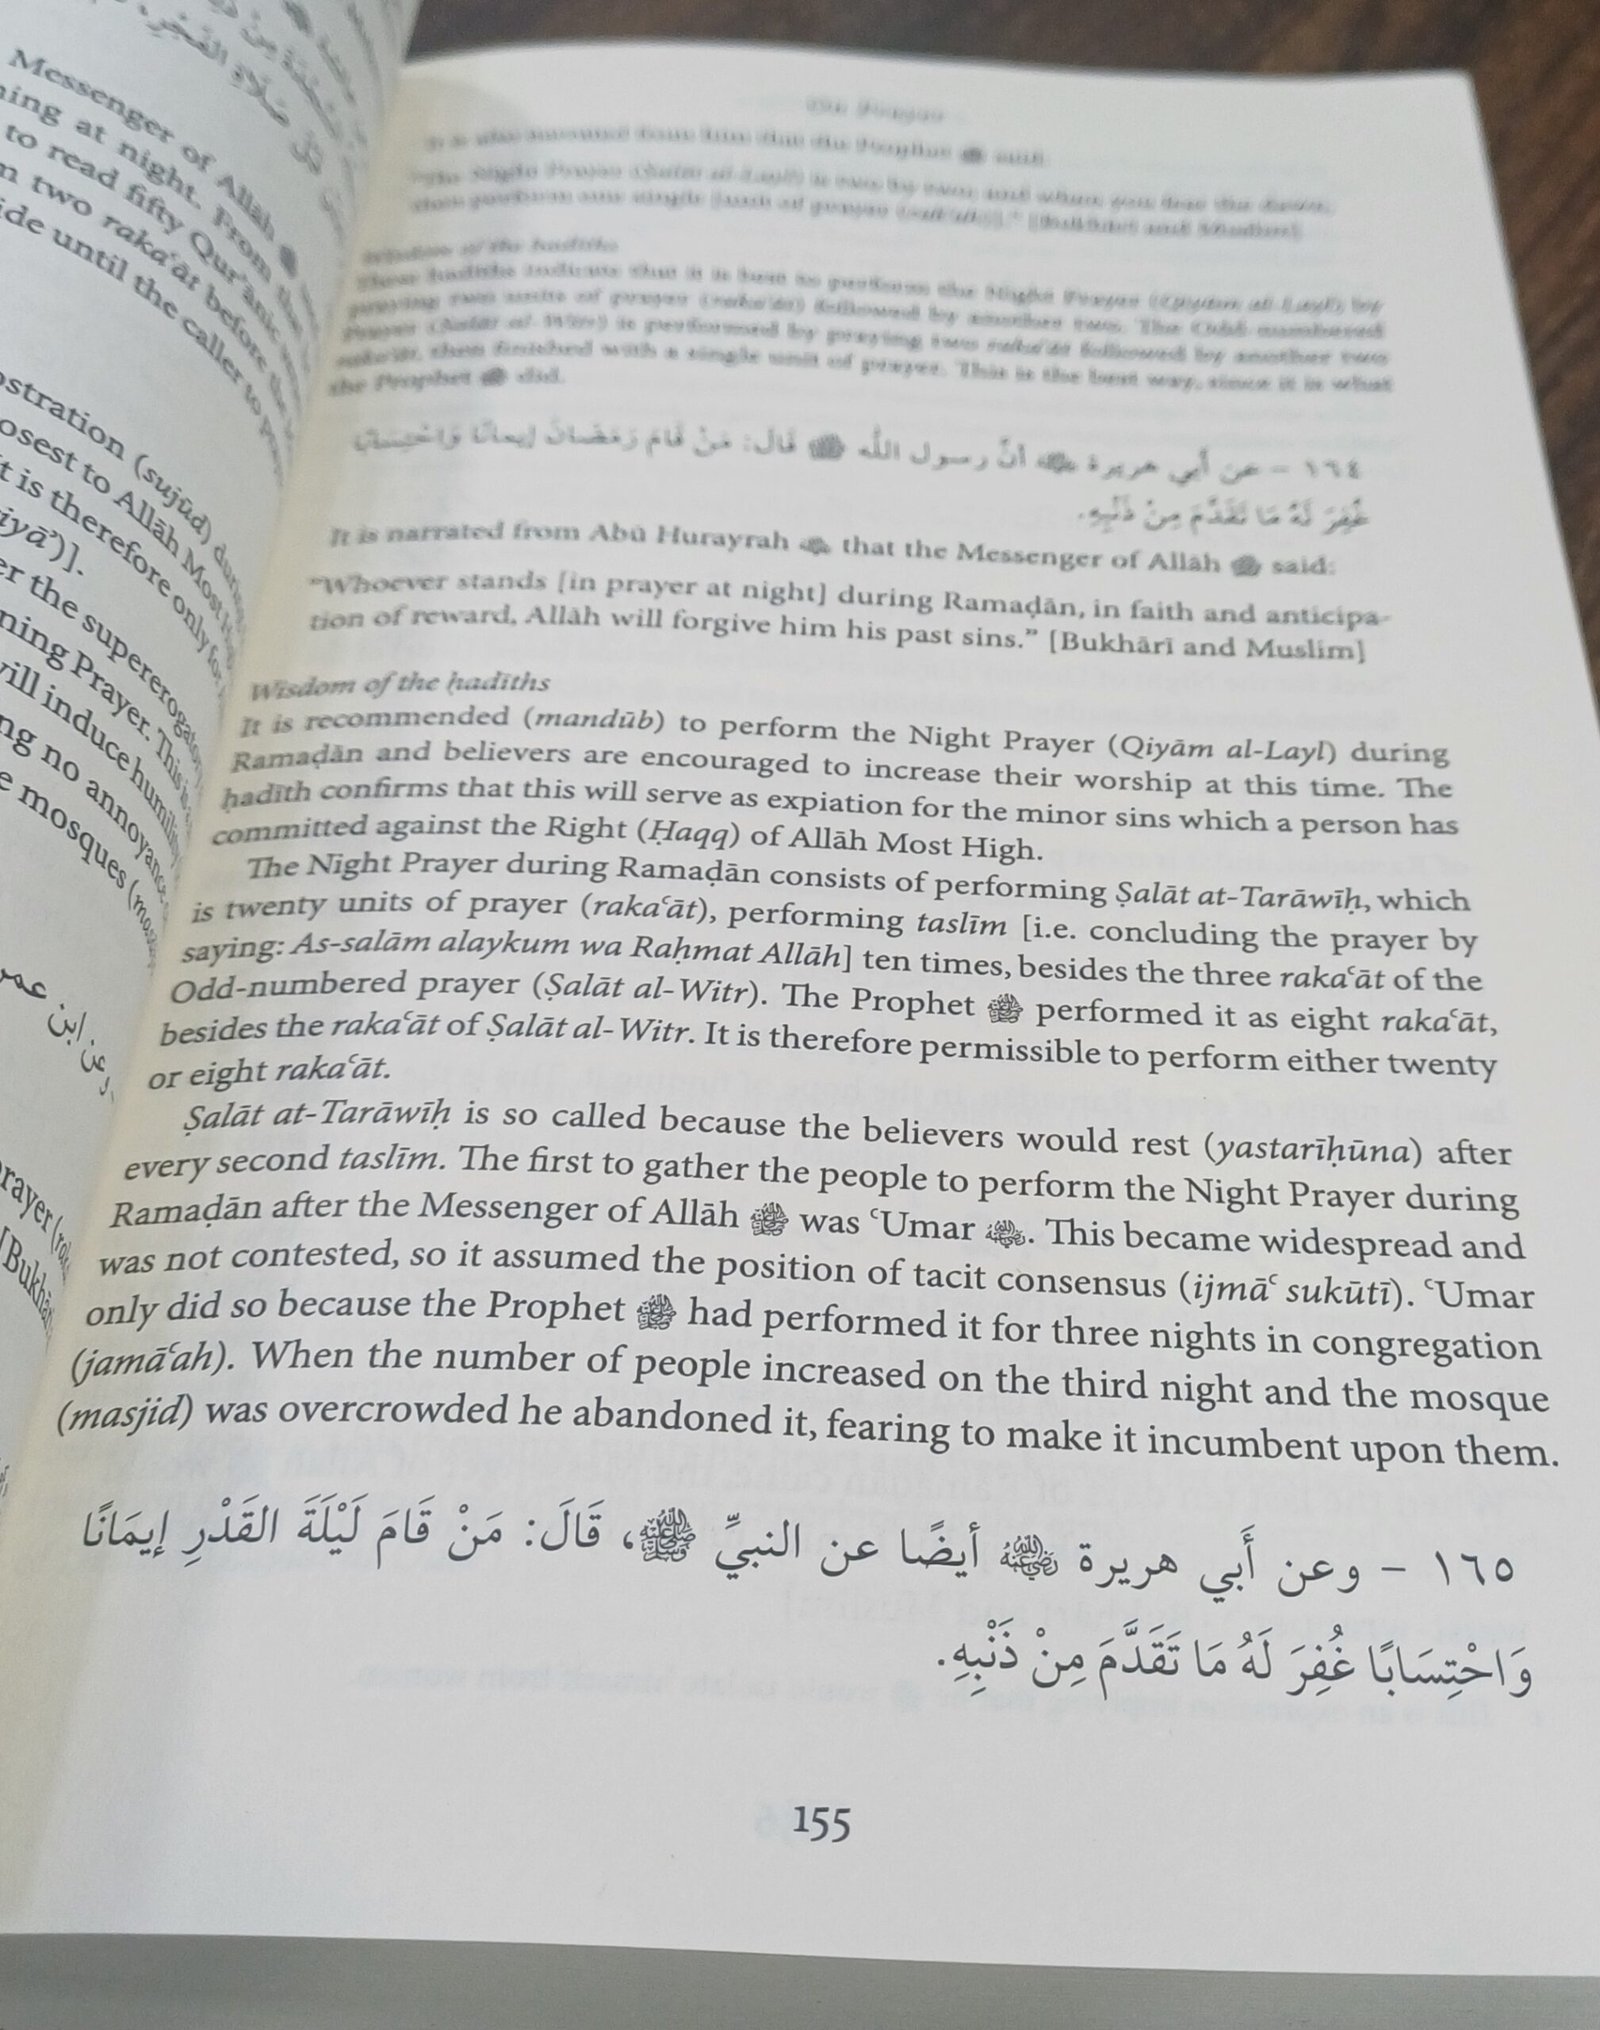 Messenger of Allāh ﷺ
ning at night. From
to read fifty Qur'ānic
m two rakaʿāt before the
ide until the caller to
ostration (sujūd)
osest to Allāh Most
t is therefore only for
riyā')].
er the supererogatory
ning Prayer. This is
will induce humility
ng no annoyance
e mosques
عن ابن عمر
rayer
[Bukhārī
On Prayer
It is also narrated from him that the Prophet ﷺ said:
"The Night Prayer (Salāt al-Layl) is two by two; and when you fear the dawn,
then perform one single [unit of prayer (rakʿah)]." [Bukhārī and Muslim]
Wisdom of the ḥadīths
These ḥadīths indicate that it is best to perform the Night Prayer (Qiyām al-Layl) by
praying two units of prayer (rakaʿāt) followed by another two. The Odd-numbered
Prayer (Ṣalāt al-Witr) is performed by praying two rakaʿāt followed by another two
rakaʿāt, then finished with a single unit of prayer. This is the best way, since it is what
the Prophet ﷺ did.
١٦٤ – عن أَبي هريرة ﵁ أنَّ رسول اللَّه ﷺ قَالَ: مَنْ قَامَ رَمَضَانَ إيمانًا وَاحْتِسَابًا
غُفِرَ لَهُ مَا تَقَدَّمَ مِنْ ذَنْبِهِ.
It is narrated from Abū Hurayrah ﵁ that the Messenger of Allāh ﷺ said:
"Whoever stands [in prayer at night] during Ramaḍān, in faith and anticipa-
tion of reward, Allāh will forgive him his past sins." [Bukhārī and Muslim]
Wisdom of the ḥadīths
It is recommended (mandūb) to perform the Night Prayer (Qiyām al-Layl) during
Ramaḍān and believers are encouraged to increase their worship at this time. The
ḥadīth confirms that this will serve as expiation for the minor sins which a person has
committed against the Right (Ḥaqq) of Allāh Most High.
The Night Prayer during Ramaḍān consists of performing Ṣalāt at-Tarāwīḥ, which
is twenty units of prayer (rakaʿāt), performing taslīm [i.e. concluding the prayer by
saying: As-salām alaykum wa Raḥmat Allāh] ten times, besides the three rakaʿāt of the
Odd-numbered prayer (Ṣalāt al-Witr). The Prophet ﷺ performed it as eight rakaʿāt,
besides the rakaʿāt of Ṣalāt al-Witr. It is therefore permissible to perform either twenty
or eight rakaʿāt.
Ṣalāt at-Tarāwīḥ is so called because the believers would rest (yastarīḥūna) after
every second taslīm. The first to gather the people to perform the Night Prayer during
Ramaḍān after the Messenger of Allāh ﷺ was ʿUmar ﵁. This became widespread and
was not contested, so it assumed the position of tacit consensus (ijmāʿ sukūtī). ʿUmar
only did so because the Prophet ﷺ had performed it for three nights in congregation
(jamāʿah). When the number of people increased on the third night and the mosque
(masjid) was overcrowded he abandoned it, fearing to make it incumbent upon them.
١٦٥ – وعن أَبي هريرة ﵁ أيضًا عن النبيِّ ﷺ، قَالَ: مَنْ قَامَ لَيْلَةَ القَدْرِ إيمَانًا
وَاحْتِسَابًا غُفِرَ لَهُ مَا تَقَدَّمَ مِنْ ذَنْبِهِ.
155